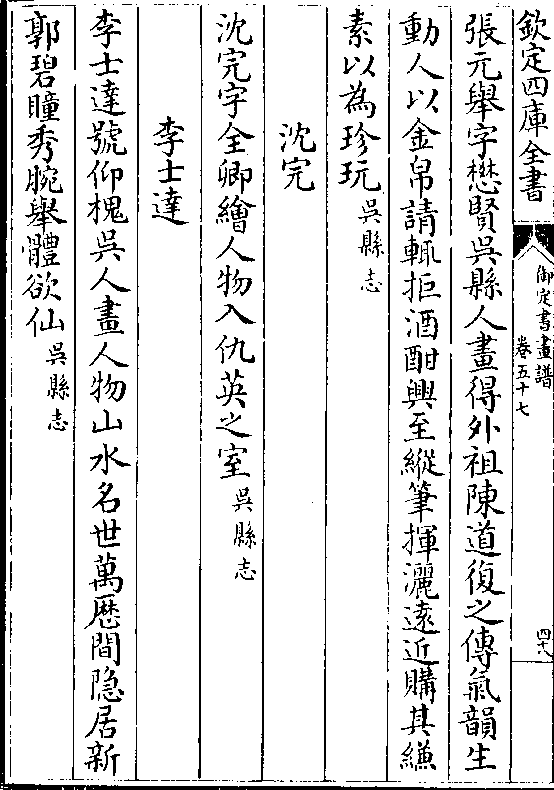 欽定四庫全書
御定書畫譜
卷五十七
四十八
張元舉字懋賢吳縣人畫得外祖陳道復之傳氣韻生
動人以金帛請輒拒酒酣興至縱筆揮灑遠近購其縑
素以為珍玩吳縣志
沈完
沈完字全卿繪人物入仇英之室吳縣志
李士達
李士達號仰槐吳人畫人物山水名世萬厯間隐居新
郭碧瞳秀腕舉體欲仙吳縣志